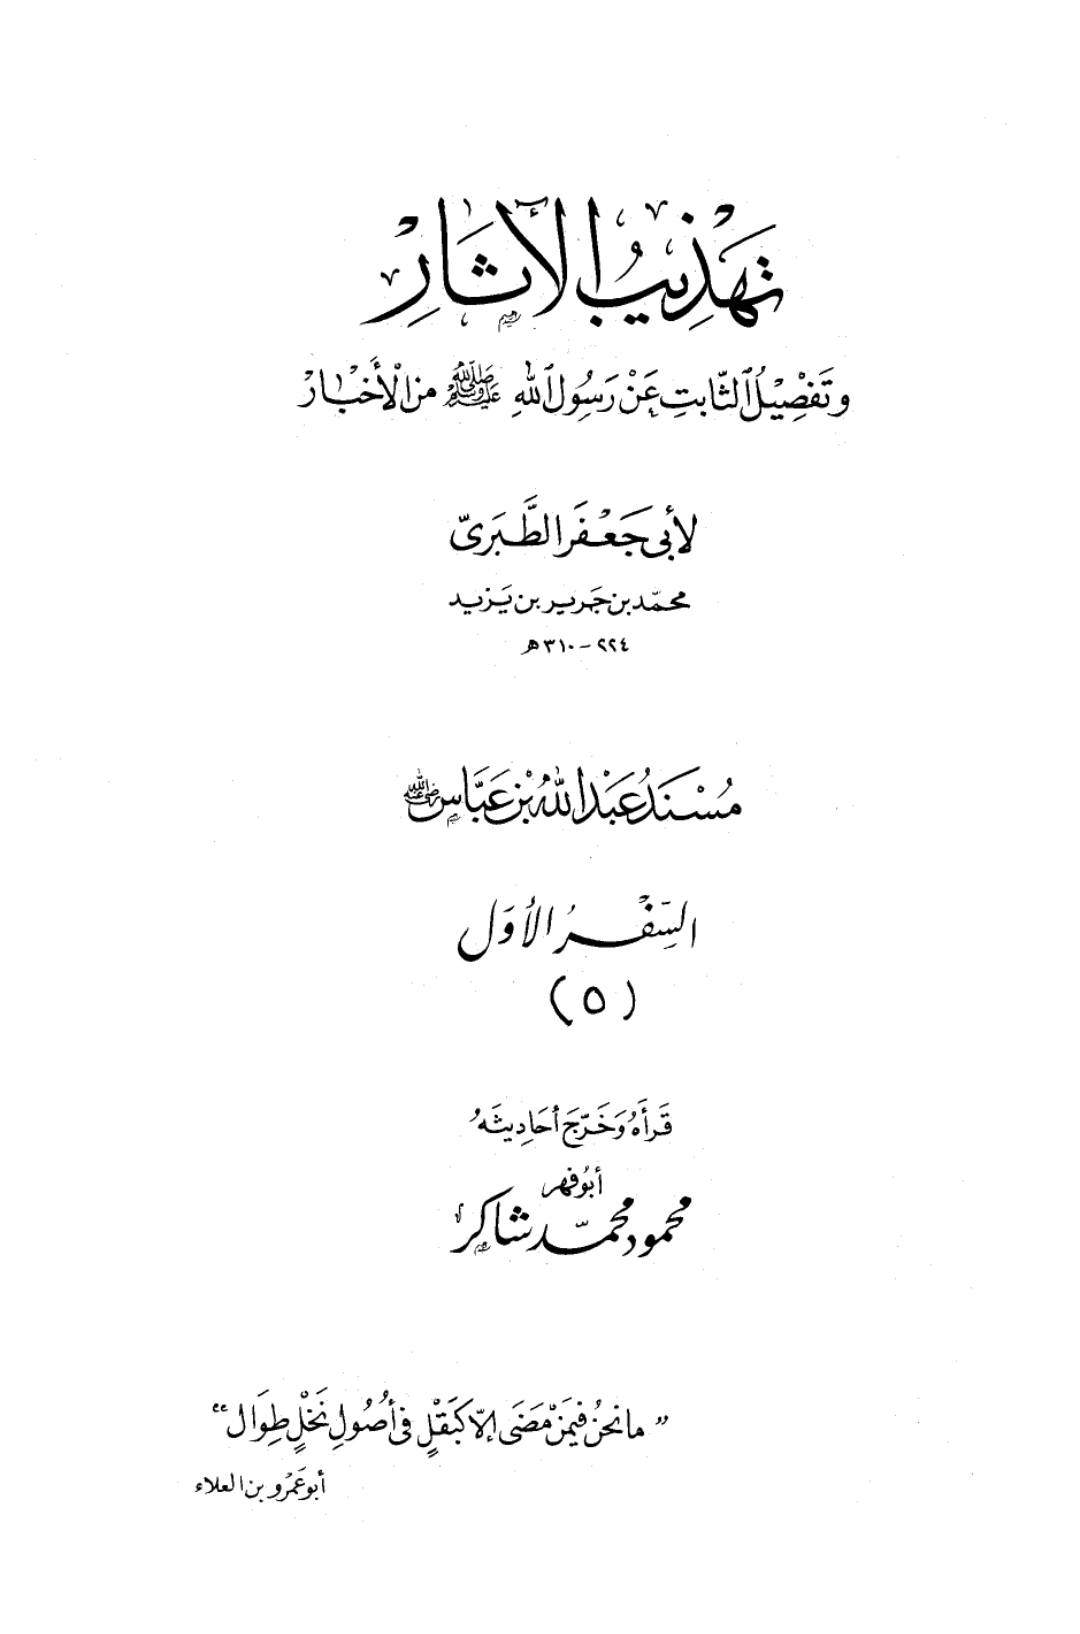 تهذيب الآثار
وتَفْصِيْلُ الثّابتِ عَنْ رَسُولِ اللهِ ﷺ من الأَخْبَارْ
لأبى جَعْفَر الطَّبَرىّ
محمّد بن جَرير بن يَزيد
٢٢٤ - ٣١٠ هـ
مُسْنَدُ عَبْدِ اللهِ بْنِ عَبَّاسٍ رضي الله عنه
السِّفْرُ الأُوَّل
(٥)
قَرَأَهُ وَخَرَّجَ أحَادِيثَهُ
أبُو فهر
محمود محمّد شاكر
" ما نحنُ فيمَنْ مَضَى إلّا كَبَقْلٍ فى أُصُولِ نَخْلٍ طِوَال "
أبو عَمْرو بن العلاء